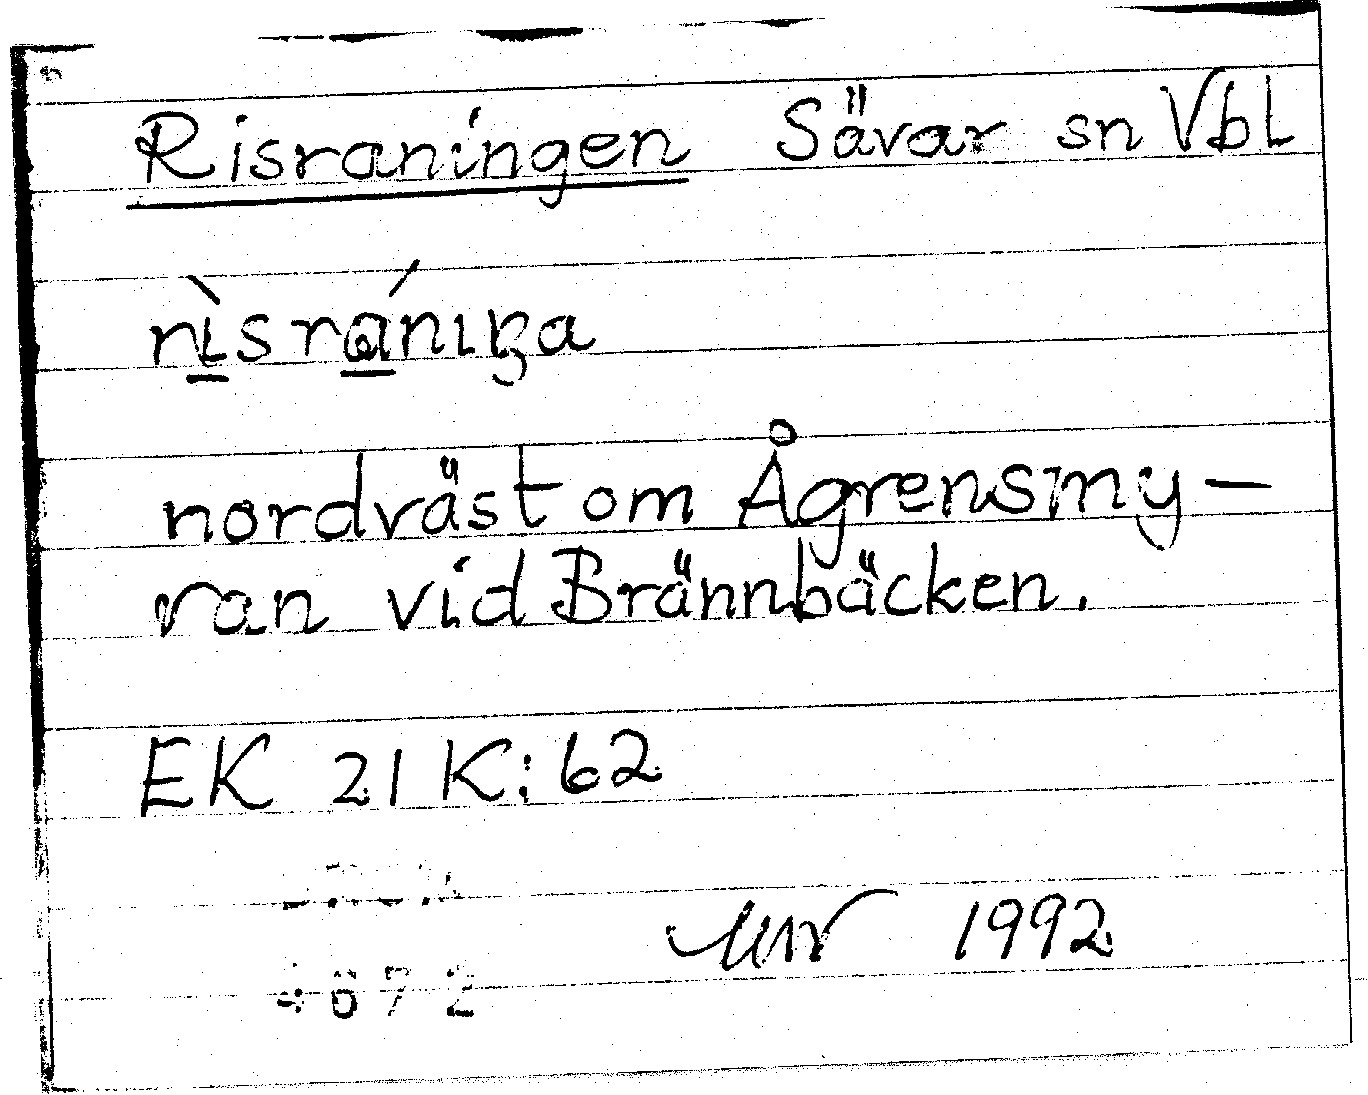 Risraningen Sävar sn Vbl
rìsrániŋa
nordväst om Ågrensmy-
ran vid Brännbäcken.
EK 21 K:62
1992
4672